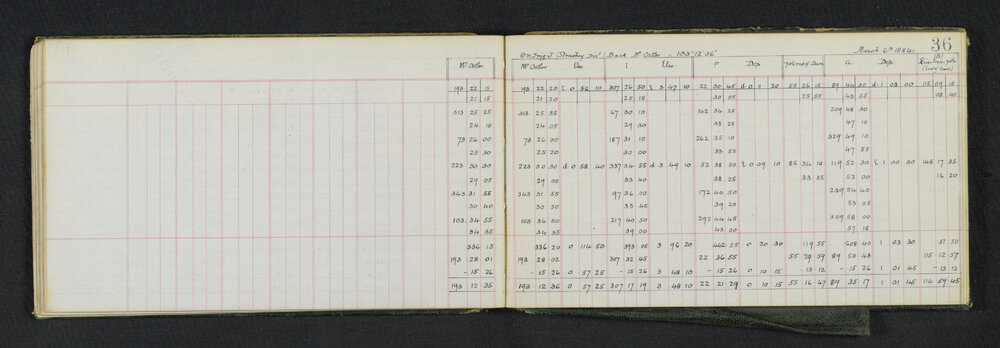 36
March 6th 1884
On Trig J (Strachey Trig) Back Mt Cutler - 193° 12' 36"
Mt Cutler Mt Cutler Elev I Elev F Dep G Dep (B)
193 22 15 193 22 20 E 0 56 10 307 26 50 E 3 47 10 22 30 45 d 0 11 20 55 26 15 89 44 30 d 1 03 00 115 09 15
21 15 21 20 25 15 30 05 25 55 43 55 08 40
313 25 25 313 25 35 67 30 10 142 34 25 209 48 30
24 10 24 05 29 30 33 25 47 10
73 26 00 73 26 00 187 31 10 262 35 10 329 49 10
25 30 25 20 30 00 33 55 47 55
223 30 30 223 30 30 d 0 58 40 337 34 55 d 3 49 10 52 38 50 E 0 09 10 85 34 10 119 52 30 E 1 00 30 145 17 35
29 05 29 00 33 40 38 25 33 35 52 00 16 20
343 31 55 343 31 55 97 36 00 172 40 50 239 54 40
30 40 30 50 35 45 39 20 53 05
103 34 55 103 34 50 217 40 50 292 44 45 359 58 00
34 35 34 35 39 00 43 00 57 15
336 15 336 20 0 114 50 393 05 3 96 20 442 55 0 20 30 119 55 608 40 1 03 30 51 50
193 28 01 193 28 02 307 32 45 22 36 55 55 29 59 89 50 43 115 12 57
- 15 26 - 15 26 0 57 25 - 15 26 3 48 10 - 15 26 0 10 15 - 13 12 - 15 26 1 01 45 - 13 12
193 12 35 193 12 36 0 57 25 307 17 19 3 48 10 22 21 29 0 10 15 55 16 47 89 35 17 1 01 45 114 59 45